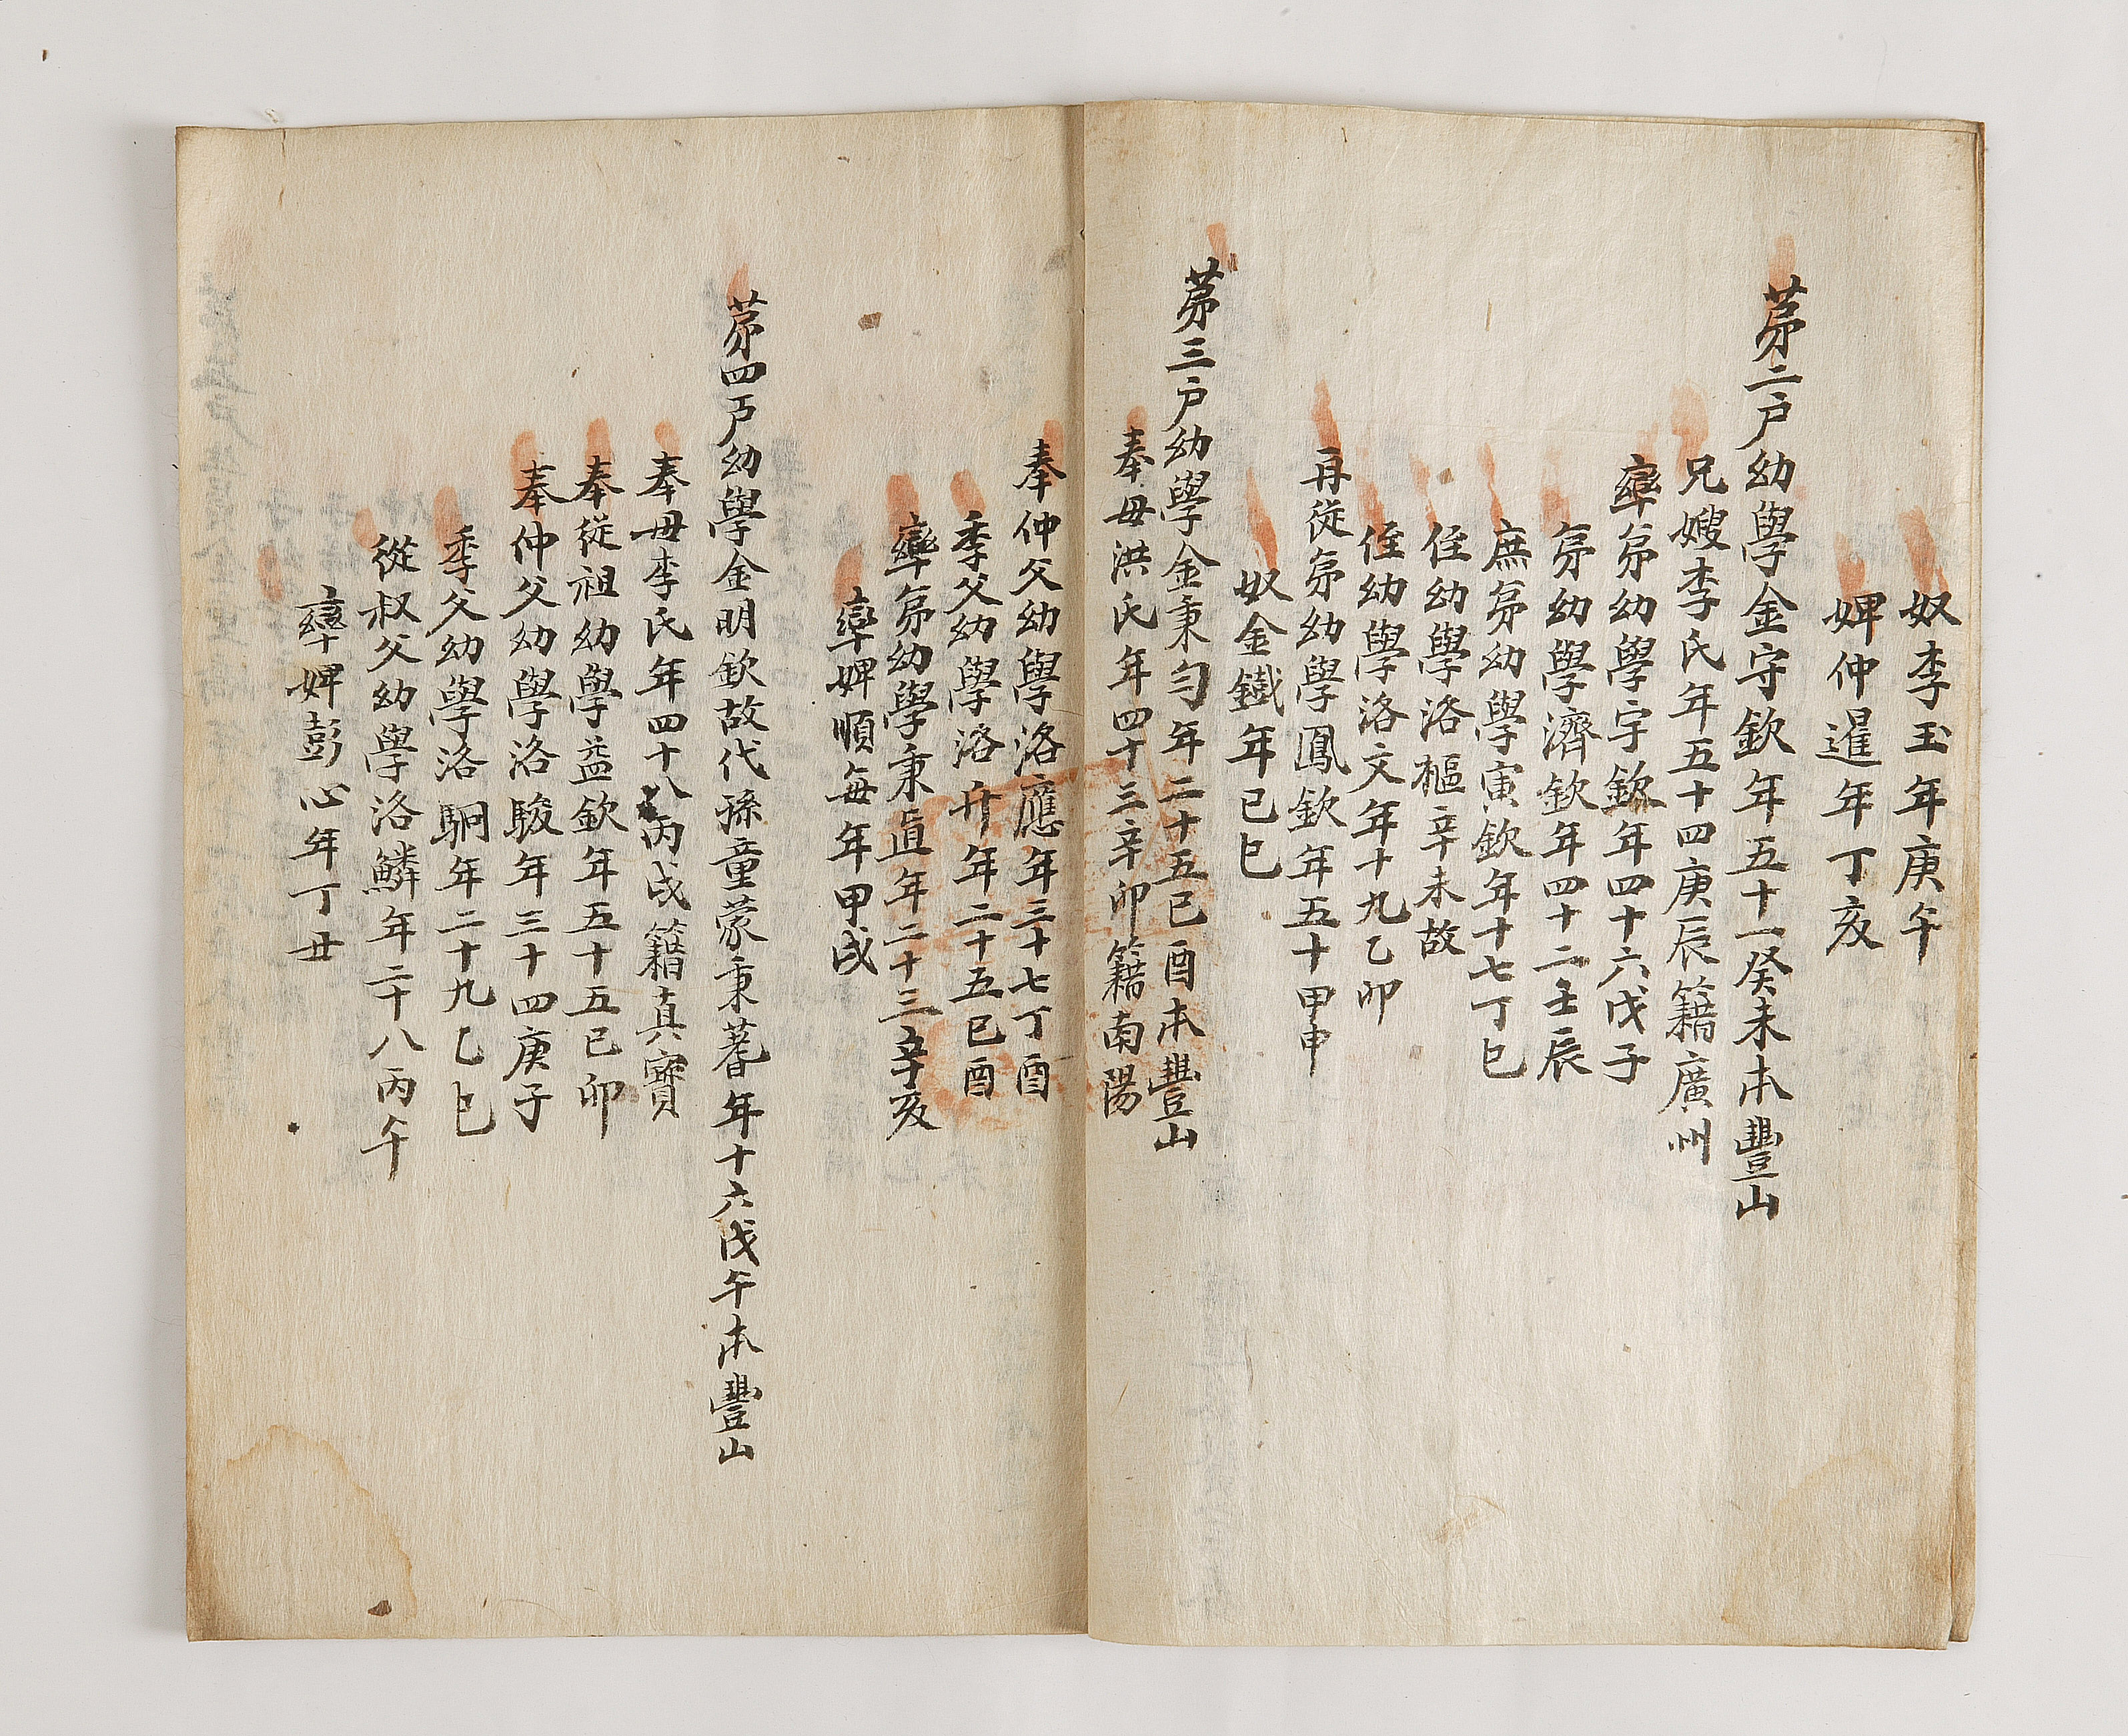 奴李玉年庚午
婢仲暹年丁亥
苐二户幼學金守欽年五十一癸未本豊山
兄嫂李氏年五十四庚辰籍廣州
率弟幼學宇欽年四十六戊子
弟幼學濟欽年四十二壬辰
庶弟幼學寅欽年十七丁巳
侄幼學洛樞辛未故
侄幼學洛文年十九乙卯
再從弟幼學鳳欽年五十甲申
奴金鐵年己巳
苐三户幼學金秉勻年二十五己酉本豊山
奉母洪氏年四十三辛卯籍南陽
奉仲父幼學洛應年三十七丁酉
季父幼學洛升年二十五己酉
率弟幼學秉直年二十三辛亥
率婢順每年甲戌
苐四户幼學金明欽故代孫童蒙秉蓍年十六戊午本豊山
奉母李氏年四十八丙戌籍真寶
奉從祖幼學益欽年五十五己卯
奉仲父幼學洛駿年三十四庚子
季父幼學洛駉年二十九乙巳
從叔父幼學洛鱗年二十八丙午
率婢彭心年丁丑